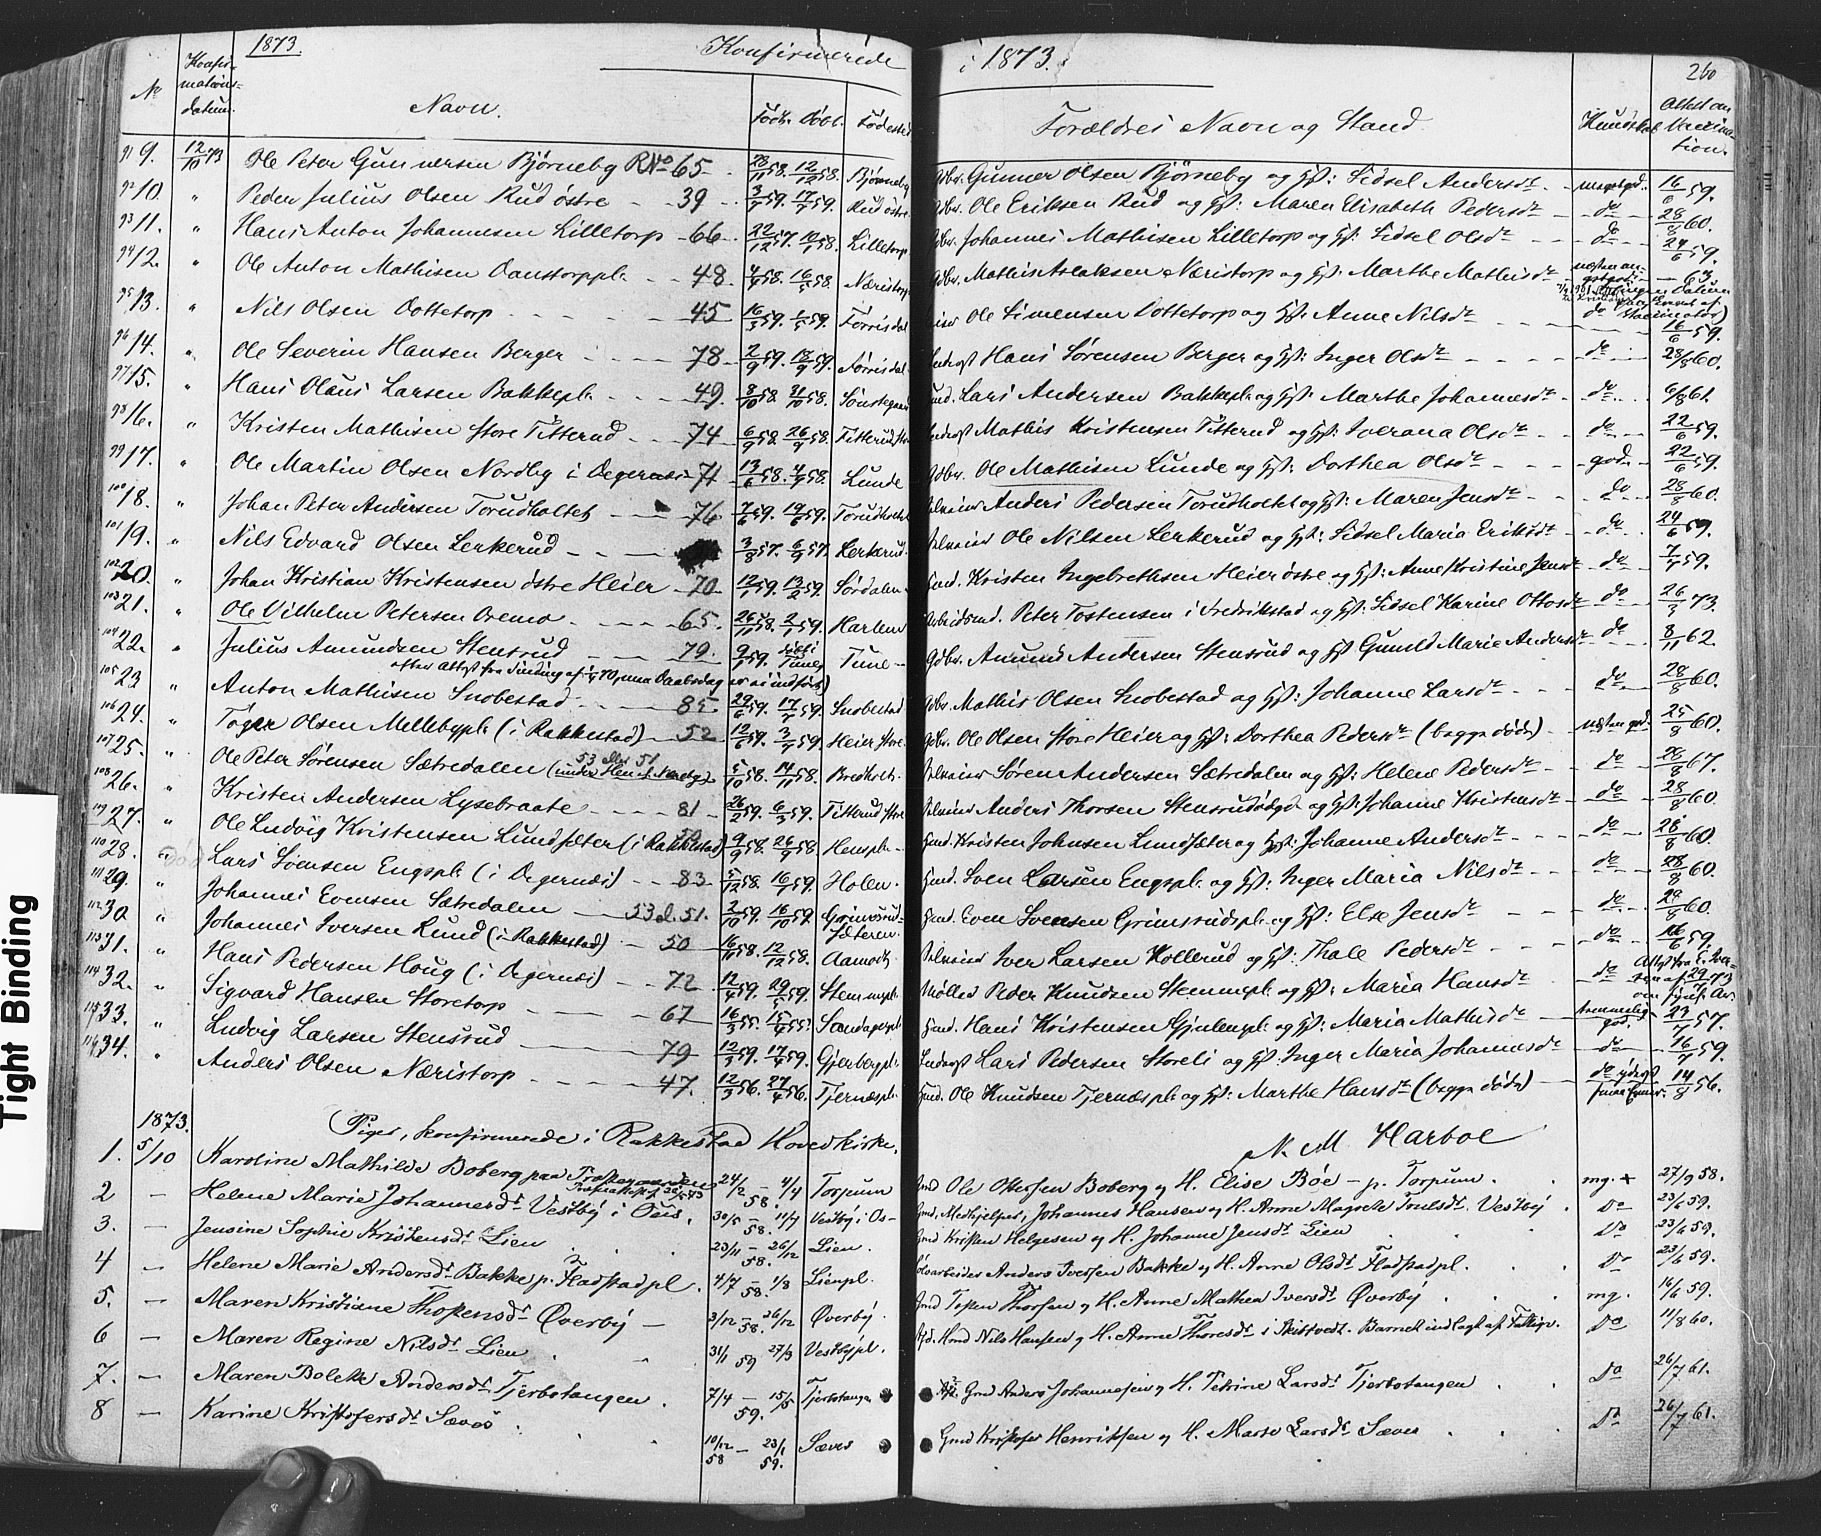 1873.
Konfirmerede i 1873.
260
No Konfirmations-datum. Navn. Födt. Döbt. Födested Forældres Navn og Stand. Kundskab Attest om Vaccination.
91 9. 12/10 73 Ole Peter Gunnersen Bjørneby RNo 65. 28/11 58. 12/12 58. Bjørneby Gdbr. Gunner Olsen Bjørneby og Hst: Sidsel Andersdr meget god. 16/6 59.
92 10. " Peder Julius Olsen Rud østre 39 3/5 59. 17/7 59. Rud østre Gdbr. Ole Eriksen Rud og Hst: Maren Elisabeth Pedersdr do 28/8 60.
93 11. " Hans Anton Johannesen Lilletorp 66. 22/12 57. 10/1 58. Lilletorp Gdbr. Johannes Mathisen Lilletorp og Hst: Sidsel Olsdr do 24/6 59.
94 12. " Ole Anton Mathisen 48. 4/4 58. 16/5 58. Næristorp Gdbr. Mathis Aslaksen Næristorp og Hst: Marthe Mathisdr 63
95 13. " Nils Olsen Dottetorp 45 16/3 59. 1/5 59. Torrisdal Ole Simensen Dottetorp og Hst: Anne Nilsdr do 16/6 59.
96 14. " Ole Severin Hansen Berger 78. 2/9 59. 18/9 59. Torrisdal Hans Sørensen Berger og Hst: Inger Olsdr do 28/8 60.
97 15. " Hans Olaus Larsen Bakkepl. 49. 8/10 58. 31/10 58. Sønstegaard Lars Andersen Bakkepl. og Hst: Marthe Johannesdr do 6/8 61.
98 16. " Kristen Mathisen Store Titterud 74 6/9 58. 26/9 58. Titterud store Mathis Kristensen Titterud og Hst: Iverana Olsdr do 22/6 59.
99 17. " Ole Martin Olsen Nordby i Degernæs 71 13/6 58. 4/7 58. Lunde Gdbr. Ole Mathisen Lunde og Hst: Dorthea Olsdr god. 22/6 59.
100 18. " Johan Peter Andersen Torudholtet 76 7/5 59. 19/6 59. Torudholtet Anders Pedersen Torudholtet og Hst: Maren Jensdr do 28/8 60.
101 19. " Nils Edvard Olsen Lerkerud 3/8 57. 6/9 57. Lerkerud. Ole Nilsen Lerkerud og Hst: Sidsel Maria Eriksdr do 24/6 59.
102 20. " Johan Kristian Kristensen østre Heier 70 12/1 59. 13/2 59. Sørdalen Kristen Ingebrethsen Heier østre og Hst: Anne Kristine Jensdr do 7/7 59.
103 21. " Ole Vilhelm Petersen Oremo 65. 26/11 58. 2/1 59. Harlem Arbeidsmd. Peter Tostensen i Fredrikstad og Hst: Sidsel Karine Ottosdr do 26/3 73.
104 22. " Julius Amundsen Stensrud 79. 9/1 59. Tune Gdbr. Amund Andersen Stensrud og Hst Gunild Marie Andersdr do 8/11 62.
105 23 " Anton Mathisen Snobestad 85. 29/6 59. 17/7 59. Snobestad Gdbr. Mathis Olsen Snobestad og Hst: Johanne Larsdr do 28/8 60.
106 24. " Töger Olsen Mellebypl. (i Rakkestad) 52 12/6 59. 3/7 59. Heier store. Gdbr. Ole Olsen Store Heier og Hst: Dorthea Pedersdr (begge døde) næsten god. 25/8 60.
107 25. " Ole Peter Sørensen Sætredalen 53 eller 51 5/10 58. 14/11 58. Bredholt. Søren Andersen Sætredalen og Hst: Helene Pedersdr do 28/8 67.
108 26. " Kristen Andersen Lysebraate 81 26/2 59. 6/3 59. Titterud store Anders Thorsen og Hst: Johanne Kristensdr do 28/8 60.
109 27. " Ole Ludvig Kristensen Lundsæter (i Rakkestad) 9/9 58. 26/9 58. Henspl. Kristen Johnsen Lundsæter og Hst: Johanne Andersdr do 28/8 60.
110 28. " Lars Svensen Engspl. (i Degernæs) 83 5/12 58. 16/1 59. Holen. Sven Larsen Engspl. og Hst: Inger Maria Nilsdr do 28/8 60.
111 29. " Johannes Evensen Sætredalen 53 el. 51. 2/10 59. 16/10 59. Grimsrudsæteren. Even Svensen Grimsrudspl. og Hst: Else Jensdr do 28/8 60.
112 30 " Johannes Iversen Lund (i Rakkestad) 50 16/11 58. 12/12 58. Aamodt Iver Larsen Kollerud og Hst: Thale Pedersdr do 16/6 59.
113 31. " Hans Pedersen Houg (i Degernæs) 72 12/4 59. 29/5 59. Stemmepl. Peder Knudsen Stemmepl. og Hst: Maria Hansdr do
114 32. " Sigvard Hansen Storetorp 67 16/3 55. 15/4 55. Sandagerpl. Hans Kristensen Gjulempl. og Hst: Maria Mathisdr temmelig god. 23/7 57.
115 33. " Ludvig Larsen Stensrud 79 12/3 59. 17/4 59. Gjerbergpl. Lars Pedersen Storeli og Hst: Inger Maria Johannesdr do 16/7 59.
116 34. " Anders Olsen Næristorp 47. 12/3 56. 27/4 56. Tjernæspl. Ole Knudsen Tjernæspl. og Hst: Marthe Hansdr (begge døde) do 14/8 56.
1873. Piger, konfirmerede i Rakkestad Hovedkirke. N. M. Harboe
1. 5/10 Karoline Mathilde Boberg paa 24/2 - 4/4 58. Torpum Gmd Ole Ottersen Boberg og H. Elise Bøe - p. Torpum. mg. + 27/9 58.
2 — Helene Marie Johannesdr Vestby i Ous. 30/5 - 11/7 58. Vestby i Os Gmd. Medhjelper, Johannes Hansen og H. Anne Magrete Trulsdr. Vestby Do 23/6 59.
3. — Jensine Sophie Kristensdr Lien 23/11 - 26/12 58. Lien. Gmd Kristen Helgesen og H. Johanne Jensdr Lien Do 23/6 59.
4 — Helene Marie Andersdr Bakke p. Fladstadpl. 4/7 - 1/8 58. Lienpl. Anders Iversen Bakke og H. Anne Olsdr Fladstadpl. Do 23/6 59.
5. — Maren Kristiane Thostensdr Øverby — 3/12 - 26/12 58. Øverby. Gmd Tosten Thorsen og H. Anne Mathea Iversdr Øverby mg. 16/6 59.
6 — Maren Regine Nilsdr Lien 31/1 59 27/3 Vestbypl. Nils Hansen og H. Anne Thoresdr i Skiptvedt. Barnet indlagt af Fattigv. Do 11/8 60.
7. — Maren Bolette Andersdr Tjerbotangen 7/4 - 15/5 59. Tjerbotangen Gmd Anders Johannesen og H. Petrine Larsdr Tjerbotangen Do 26/7 61.
8 — Karine Kristofersdr Sæves 10/12 58 - 23/1 59. Sæves Gmd Kristofer Henriksen og H. Marte Larsdr Sæves Do 26/7 61.
Tight Binding